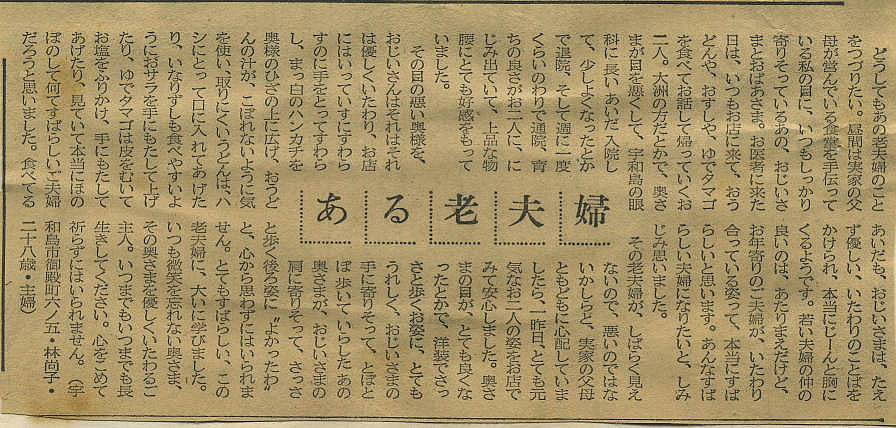 ある老夫婦
どうしてもあの老夫婦のこと
をつづりたい。昼間は実家の父
母が営んでいる食堂を手伝って
いる私の目に、いつもしっかり
寄りそっているあの、おじいさ
まとおばあさま。お医者に来た
日は、いつもお店に来て、おう
どんや、おすしや、ゆでタマゴ
を食べてお話して帰っていくお
二人。大洲の方だとかで、奥さ
まが目を悪くして、宇和島の眼
科に長いあいだ入院し
て、少しよくなったとか
で退院、そして週に一度
くらいのわりで通院、育
ちの良さがお二人に、に
じみ出ていて、上品な物
腰にとても好感をもって
いました。
その目の悪い奥様を、
おじいさんはそれはそれ
は優しくいたわり、お店
にはいっていすにすわら
すのに手をとってすわら
し、まっ白のハンカチを
奥様のひざの上に広げ、おうど
んの汁が、こぼれないように気
を使い、取りにくいうどんは、ハ
シにとって口に入れてあげた
り、いなりずしも食べやすいよ
うにおサラを手にもたして上げ
たり、ゆでタマゴは皮をむいて
お塩をふりかけ、手にもたして
あげたり、見ていて本当にほの
ぼのして何てすばらしいご夫婦
だろうと思いました。食べてる
あいだも、おじいさまは、たえ
ず優しい、いたわりのことばを
かけられ、本当にじーんと胸に
くるようです。若い夫婦の仲の
良いのは、あたりまえだけど、
お年寄りのご夫婦が、いたわり
合っている姿って、本当にすば
らしいと思います。あんなすば
らしい夫婦になりたいと、しみ
じみ思いました。
その老夫婦が、しばらく見え
ないので、悪いのではな
いかしらと、実家の父母
ともどもに心配していま
したら、一昨日、とても元
気なお二人の姿をお店で
みて安心しました。奥さ
まの目が、とても良くな
ったとかで、洋装でさっ
さと歩くお姿に、とても
うれしく、おじいさまの
手に寄りそって、とぼと
ぼ歩いていらしたあの
奥さまが、おじいさまの
肩に寄りそって、さっさ
と歩く後ろ姿に〝よかったわ〟
と、心から思わずにはいられま
せん。とてもすばらしい、この
老夫婦に、大いに学びました。
いつも微笑を忘れない奥さま、
その奥さまを優しくいたわるご
主人。いつまでもいつまでも長
生きしてください。心をこめて
祈らずにはいられません。（宇
和島市御殿町六ノ五・林尚子・
二十八歳・主婦）